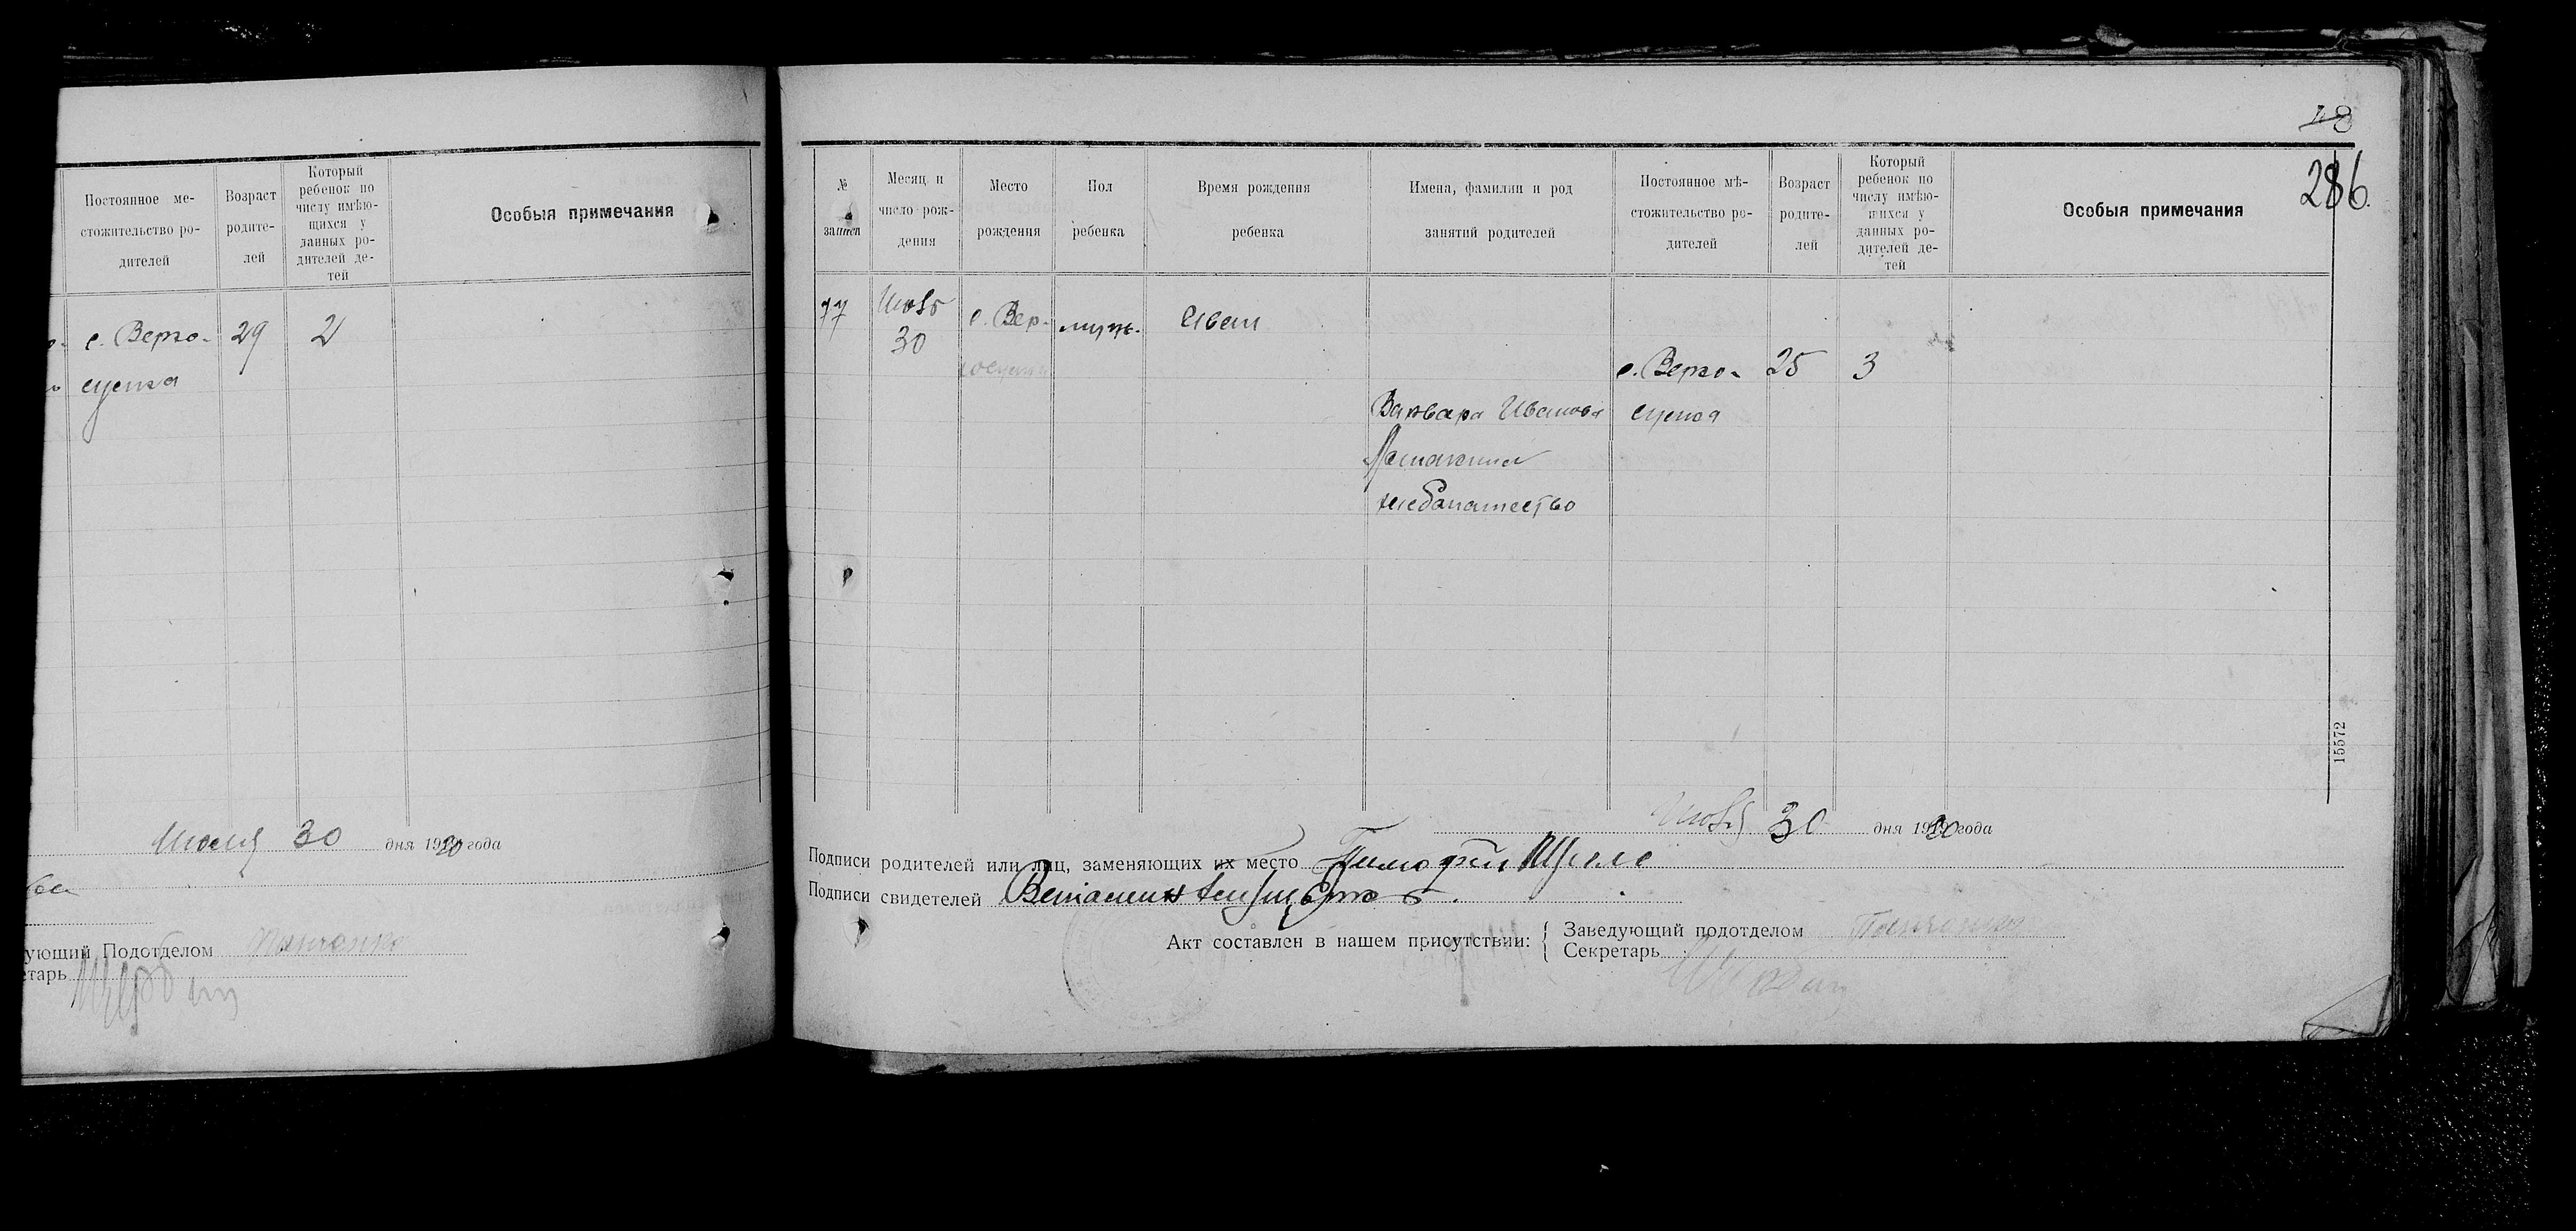 Постоянное ме-
стожительство ро-
дителей
Возраст
родите-
лей
Который
ребенок по
числу имѣю-
щихся у
данных ро-
дителей де-
тей
Особыя примечания
с. Верго-
29
2
сунка
Июля 30 дня 1920 года
ующий Подотделом Панченко
етарь
Щербан
48
286
№
записи
Месяц и
число рож-
дения
Место
рождения
Пол
ребенка
Время рождения
ребенка
Имена, фамилии и род
занятий родителей
Постоянное мѣ-
стожительство ро-
дителей
Возраст
родите-
лей
Который
ребенок по
числу имѣю-
щихся у
данных ро-
дителей де-
тей
Особыя примечания
77
Июль
30
с. Вер-
муж.
Иван
с. Верго-
25
3
Варвара Иванова
сунка
хлебопашество
15572
30 дня 1920 года
Подписи родителей или лиц, заменяющих их место Тимофей
Подписи свидетелей Вениамин
Акт составлен в нашем присутствии:
Заведующий подотделом Панченко
Секретарь
Щербан